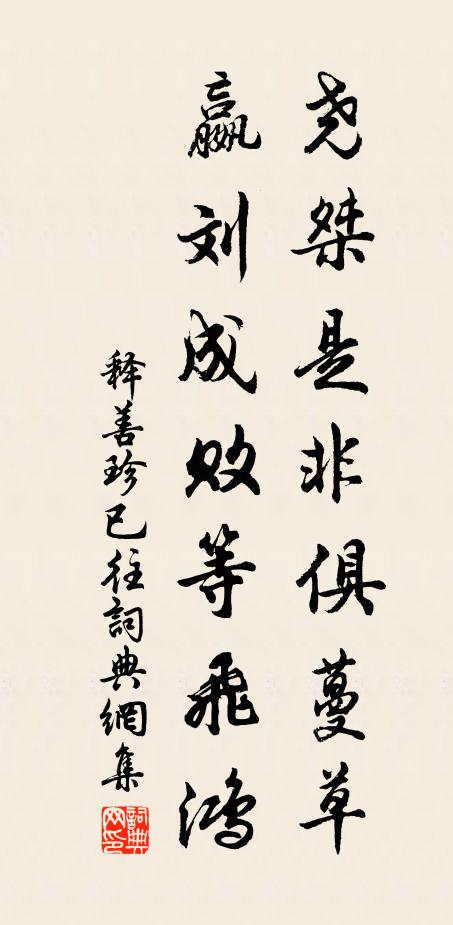 尧桀是非俱蔓草
嬴刘成败等飞鸿
释善珍已往詞典網集
詞典網印